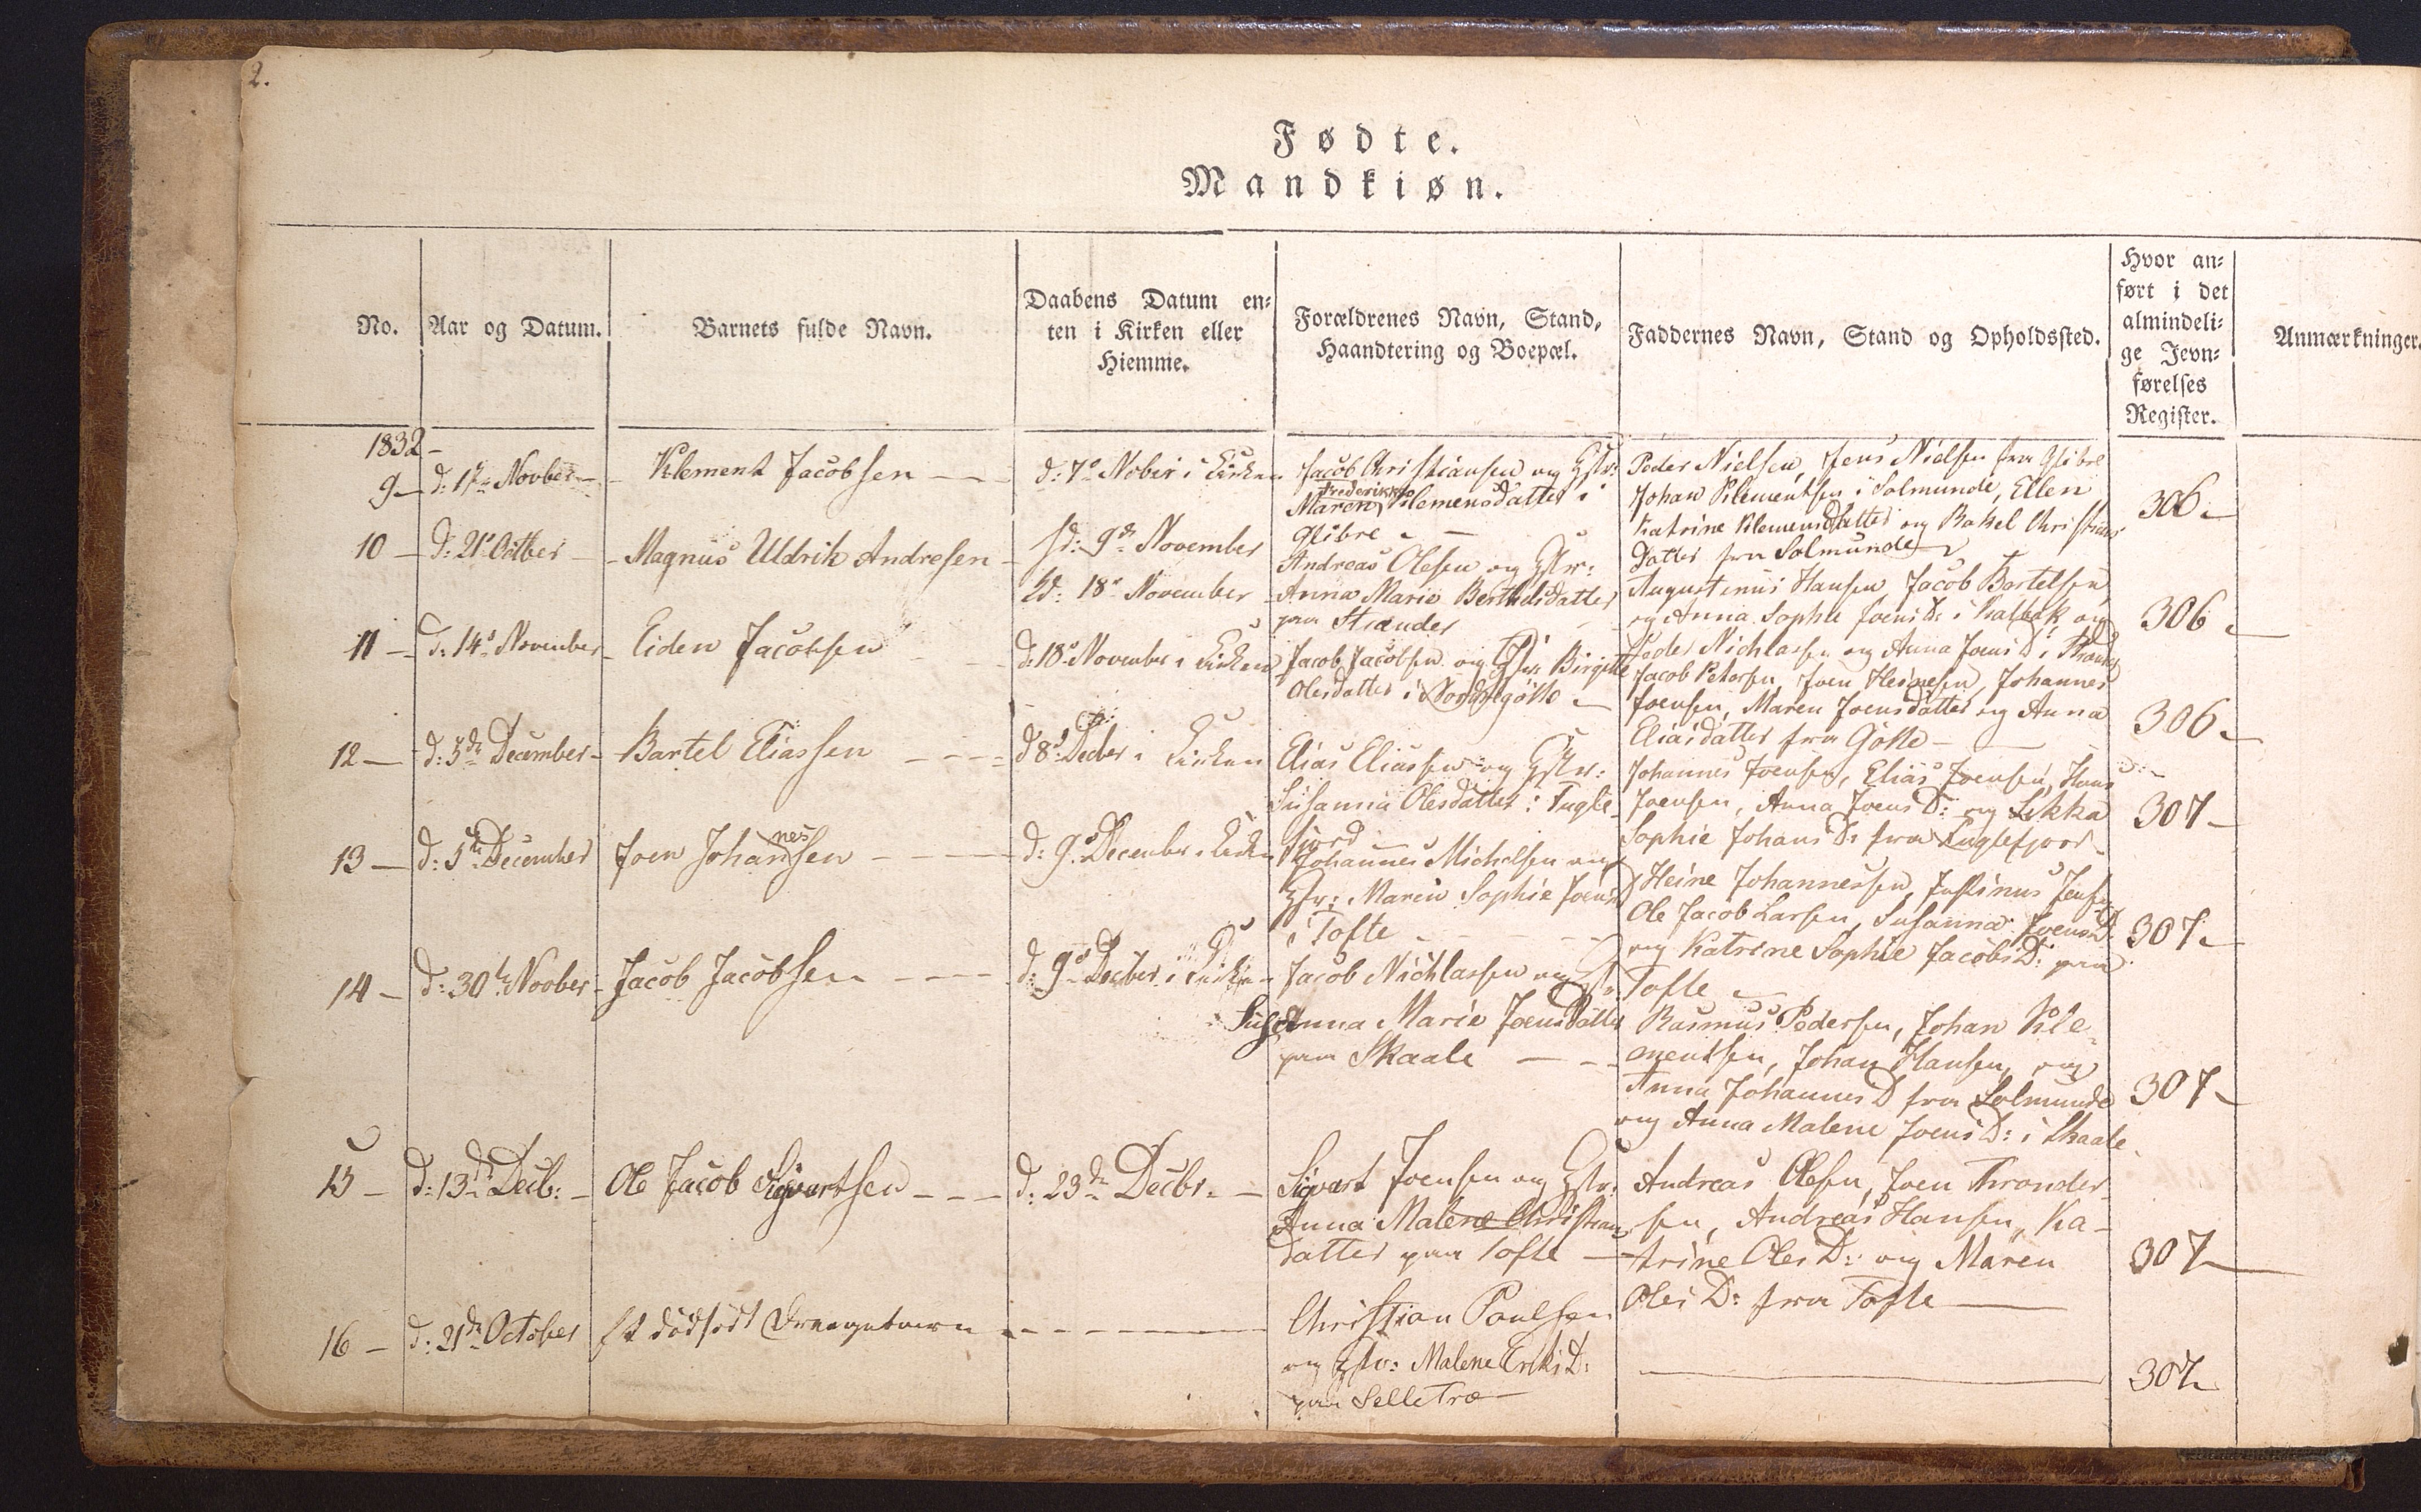 2.
Fødte.
Mandkiøn.
No.
Aar og Datum.
Barnets fulde Navn.
Daabens Datum en-
ten i Kirken eller
Hiemme.
Forældrenes Navn, Stand,
Haandtering og Boepæl.
Faddernes Navn, Stand og Opholdssted.
Hvor an-
ført i det
almindeli-
ge Jevn-
førelses
Register.
Anmærkninger.
1832-
9-
d: 1ste Novber-
Klement Jacobsen
d: 7de Nober i Kirken
Jacob Christiansen og Hstr:
Frederikke
Maren Klemensdatter i
Glibre
Peder Nielsen, Jens Nielsen fra Glibre
Johan Klementsen i Solmunde, Ellen
Katrine Klemensdatter og Rakel Christians
datter fra Solmunde
306
10-
d: 21de Octber
Magnus Uldrik Andresen
fd: 9de November
d: 18de November
Andreas Olesen og Hstr:
Anna Marie Berthelsdatter
paa Strænder
Augustinus Hansen, Jacob Bartelsen
og Anna Sophie Joens D: i Kalbak og
Peder Nichlassen og Anna Joens D: i
306
11-
d: 14de November
Eiden Jacobsen
d: 18de November i Kirken
Jacob Jacobsen og Hstr: Birgitte
Olesdatter i Nordregötte
Jacob Petersen, Joen Heinesen, Johannes
Joensen, Maren Joensdatter og Anna
Eliasdatter fra Götte
306
12-
d: 5de December-
Bartel Eliassen
d 8de Decber i Kirken
Elias Eliassen og Hstr:
Susanna Olesdatter i Fugle-
fjord
Johannes Joensen, Elias Joensen, Hans
Joensen, Anna Joens D: og Sikka
Sophie Johans D: fra Fuglefjord
307
13-
d: 5te December
Joen Johannessen
d: 9de December i Kirken
Johannes Michelsen og
Hstr: Maren Sophie Joens D
i Tofte
Heine Johannessen, Justinus Jensen
Ole Jacob Larsen, Susanna Joens D:
og Katrine Sophie Jacobs D: paa
Tofte
307
14-
d: 30te Novber-
Jacob Jacobsen
d: 9de Decber i Kirken
Jacob Nichlassen og Hstr:
SusAnna Marie Joensdatter
paa Skaale
Rasmus Pedersen, Johan Kle-
mentsen, Johan Hansen, og
Anna Johannes D fra Solmunde
og Anna Malene Joens D: i Skaale
307
15-
d: 13de Decb:
Ole Jacob Sigvartsen
d: 23de Decbr.
Sigvart Joensen og Hstr:
Anna Malene Christians
datter paa Tofte
Andreas Olesen, Joen Thronder-
sen, Andreas Hansen, Ka-
trine Oles D: og Maren
Oles D: fra Tofte
307
16-
d: 21de October
Et dödfödt Drengebarn
Christian Poulsen
og Hstr: Malene Eriks D:
paa Selletræ
307